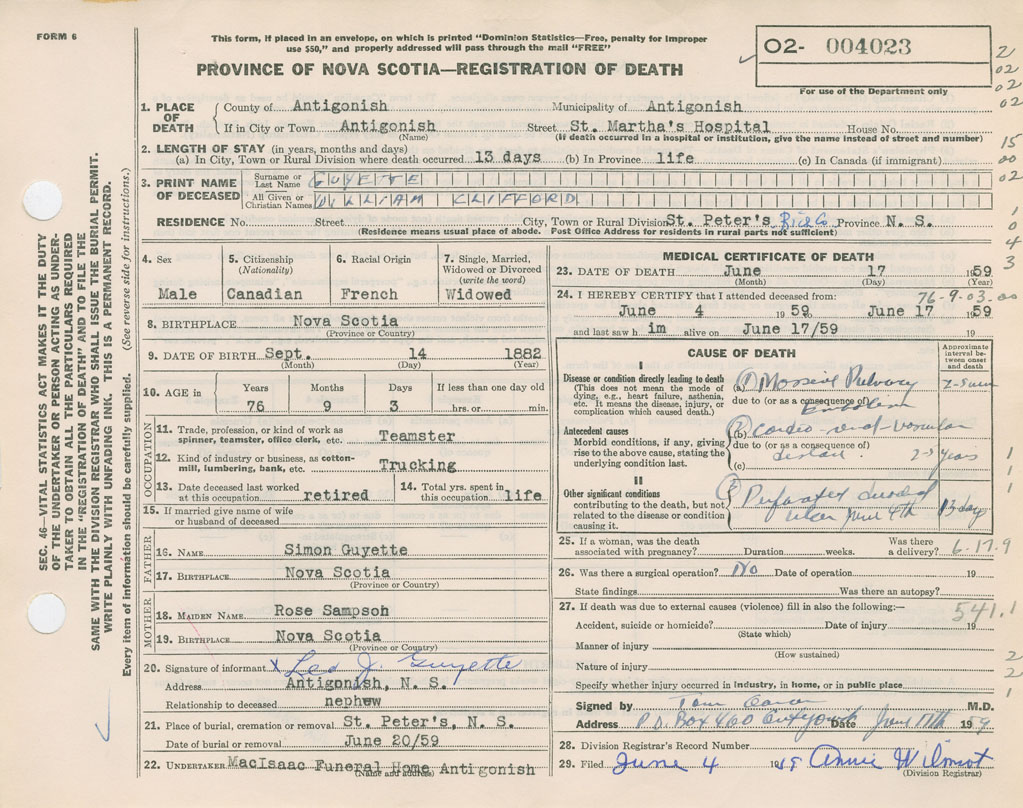 FORM 6
This form, if placed in an envelope, on which is printed "Dominion Statistics—Free, penalty for improper
use $50," and properly addressed will pass through the mail "FREE"
PROVINCE OF NOVA SCOTIA—REGISTRATION OF DEATH
02- 004023
For use of the Department only
2
02
02
02
15
00
02
1
0
4
3
1. PLACE OF DEATH
County of Antigonish Municipality of Antigonish
If in City or Town Antigonish Street St. Martha's Hospital House No.
(Name) (If death occurred in a hospital or institution, give the name instead of street and number)
2. LENGTH OF STAY (in years, months and days)
(a) In City, Town or Rural Division where death occurred 13 days (b) In Province life (c) In Canada (if immigrant)
3. PRINT NAME OF DECEASED
Surname or Last Name GUYETTE
All Given or Christian Names WILLIAM CLIFFORD
RESIDENCE No. Street City, Town or Rural Division St. Peter's Rich Co Province N. S.
(Residence means usual place of abode. Post Office Address for residents in rural parts not sufficient)
4. Sex
Male
5. Citizenship
(Nationality)
Canadian
6. Racial Origin
French
7. Single, Married,
Widowed or Divorced
(write the word)
Widowed
8. BIRTHPLACE Nova Scotia
(Province or Country)
9. DATE OF BIRTH Sept. 14 1882
(Month) (Day) (Year)
10. AGE in
Years Months Days If less than one day old
76 9 3 hrs. or min.
OCCUPATION
11. Trade, profession, or kind of work as
spinner, teamster, office clerk, etc. Teamster
12. Kind of industry or business, as cotton-
mill, lumbering, bank, etc. Trucking
13. Date deceased last worked
at this occupation retired
14. Total yrs. spent in
this occupation life
15. If married give name of wife
or husband of deceased
FATHER
16. NAME Simon Guyette
17. BIRTHPLACE Nova Scotia
(Province or Country)
MOTHER
18. MAIDEN NAME Rose Sampson
19. BIRTHPLACE Nova Scotia
(Province or Country)
20. Signature of informant X Leo J. Guyette
Address Antigonish, N. S.
Relationship to deceased nephew
21. Place of burial, cremation or removal St. Peter's, N. S.
Date of burial or removal June 20/59
22. UNDERTAKER MacIsaac Funeral Home Antigonish
(Name and address)
MEDICAL CERTIFICATE OF DEATH
23. DATE OF DEATH June 17 1959
(Month) (Day) (Year)
24. I HEREBY CERTIFY that I attended deceased from: 76-9-03.00
June 4 1959, June 17 1959
and last saw h im alive on June 17/59 19
CAUSE OF DEATH
Approximate
interval be-
tween onset
and death
I
Disease or condition directly leading to death
(This does not mean the mode of
dying, e.g., heart failure, asthenia,
etc. It means the disease, injury, or
complication which caused death.)
(a) Massive
due to (or as a consequence of)
Embolism
Antecedent causes
Morbid conditions, if any, giving
rise to the above cause, stating the
underlying condition last.
(b) Cardio-renal-vascular
due to (or as a consequence of)
disease. 2-3 years
(c)
II
Other significant conditions
contributing to the death, but not
related to the disease or condition
causing it.
Perforated duodenal
ulcer June 4th 13 days
25. If a woman, was the death
associated with pregnancy? Duration weeks.
Was there
a delivery? 6.17.9
26. Was there a surgical operation? No Date of operation 19
State findings Was there an autopsy?
27. If death was due to external causes (violence) fill in also the following:—
541.1
Accident, suicide or homicide? Date of injury 19
(State which)
Manner of injury
(How sustained)
Nature of injury
Specify whether injury occurred in industry, in home, or in public place
Signed by M.D.
Address P.O. Box 460 Antigonish Date June 17th 1959
28. Division Registrar's Record Number
29. Filed June 4 1959 Annie Wilmot
(Division Registrar)
1
1
1
2
2
1
SEC. 46—VITAL STATISTICS ACT MAKES IT THE DUTY
OF THE UNDERTAKER OR PERSON ACTING AS UNDER-
TAKER TO OBTAIN ALL THE PARTICULARS REQUIRED
IN THE "REGISTRATION OF DEATH" AND TO FILE THE
SAME WITH THE DIVISION REGISTRAR WHO SHALL ISSUE THE BURIAL PERMIT.
WRITE PLAINLY WITH UNFADING INK. THIS IS A PERMANENT RECORD.
Every item of information should be carefully supplied. (See reverse side for instructions.)